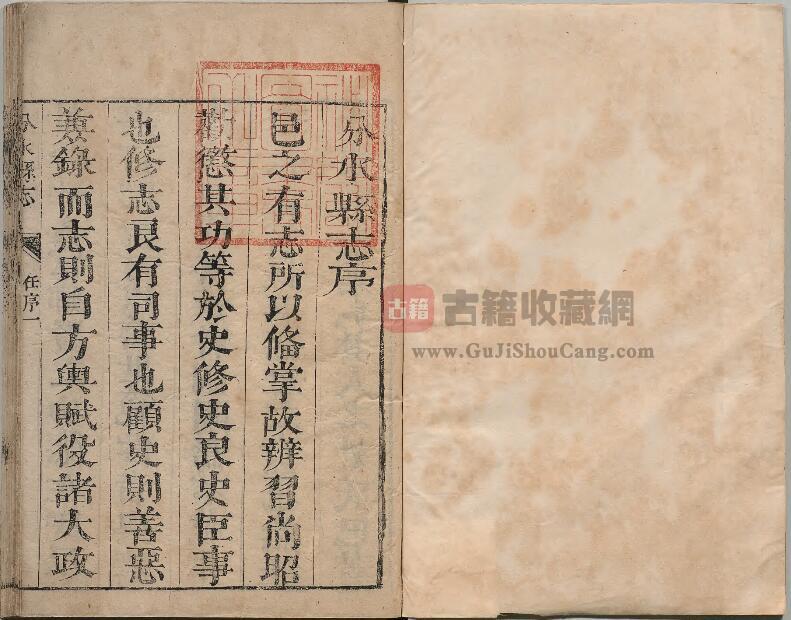 分水縣志序
邑之有志所以俻掌故辨習尚昭
勸懲其功等於史修史良史臣事
也修志良有司事也顧史則善惡
蒹錄而志則自方輿賦役諸大政
分水縣志
任序一
古籍
古籍收藏網
www.GuJiShouCang.com